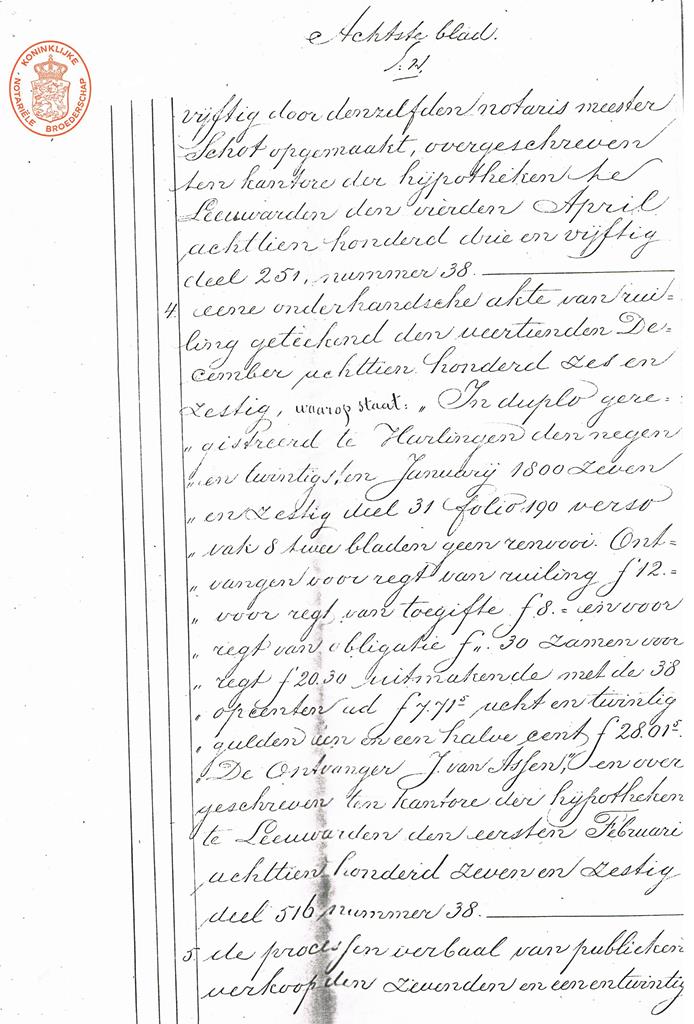 Achtste blad.
KONINKLIJKE NOTARIËLE BROEDERSCHAP
vijftig door denzelfden notaris meester
Schot opgemaakt, overgeschreven
ten kantore der hypotheken te
Leeuwarden den vierden April
achttien honderd drie en vijftig
deel 251, nummer 38.
4. eene onderhandsche akte van rui=
ling geteekend den veertienden De=
cember achttien honderd zes en
zestig, waarop staat: „ In duplo gere=
„ gistreerd te Harlingen den negen
„ en twintigsten Januarij 1800 zeven
„ en zestig deel 31 folio 190 verso
„ vak 8 twee bladen geen renvooi. Ont=
„ vangen voor regt van ruiling f 12.=
„ voor regt van toegifte f 8.= en voor
„ regt van obligatie f „. 30 zamen voor
„ regt f 20.30 uitmakende met de 38
„ opcenten ad f 7.71⁵ acht en twintig
„ gulden een en een halve cent f 28.01⁵.
„ De Ontvanger J. van Assen," en over
geschreven ten kantore der hypotheken
te Leeuwarden den eersten Februari
achttien honderd zeven en zestig
deel 516 nummer 38.
5. de processen verbaal van publieken
verkoop den zevenden en eenentwintig